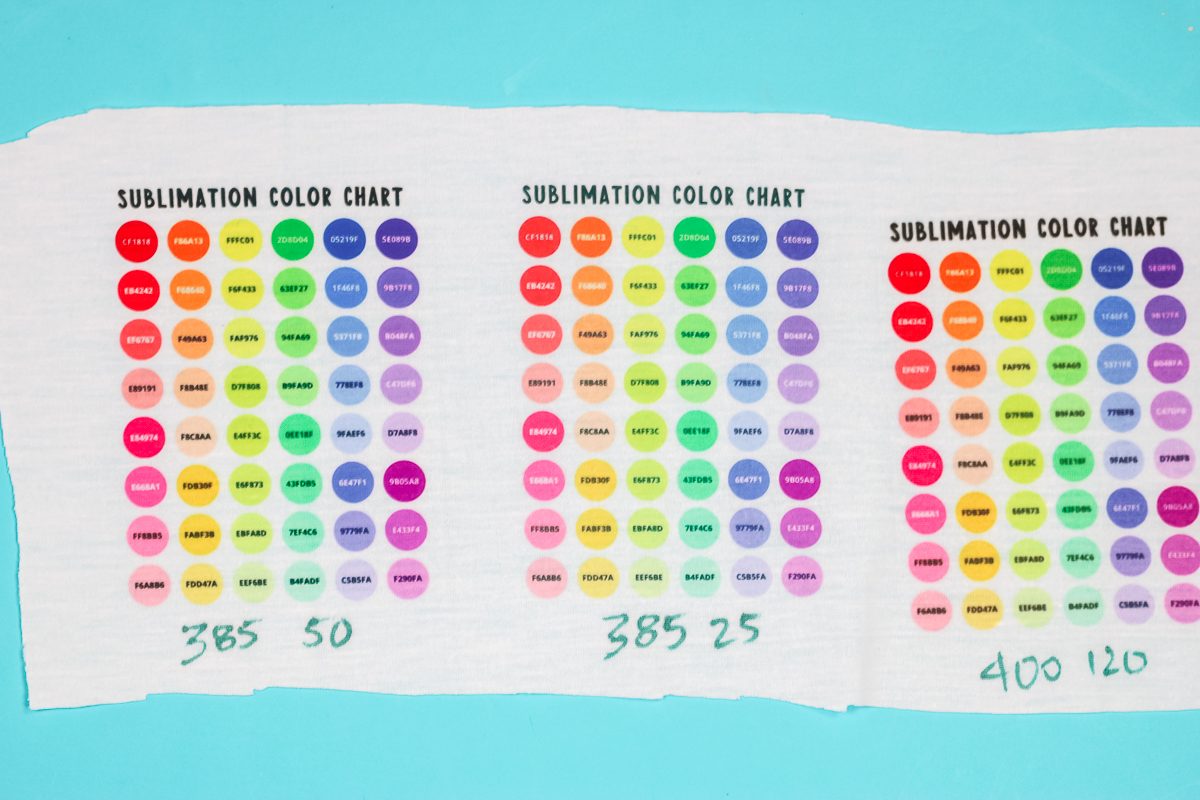 SUBLIMATION COLOR CHART
CF1818 F86A13 FFFC01 2D8D04 05219F 5E089B
EB4242 F68640 F6F433 63EF27 1F46F8 9B17F8
EF6767 F49A63 FAF976 94FA69 5371F8 B048FA
E89191 F8B48E D7F808 B9FA9D 778EF8 C47DF6
E84974 F8C8AA E4FF3C 0EE18F 9FAEF6 D7A8F8
E668A1 FDB30F E6F873 43FDB5 6E47F1 9B05A8
FF8BB5 FABF3B EBFA8D 7EF4C6 9779FA E433F4
F6A8B6 FDD47A EEF6BE B4FADF C5B5FA F290FA
385 50
SUBLIMATION COLOR CHART
CF1818 F86A13 FFFC01 2D8D04 05219F 5E089B
EB4242 F68640 F6F433 63EF27 1F46F8 9B17F8
EF6767 F49A63 FAF976 94FA69 5371F8 B048FA
E89191 F8B48E D7F808 B9FA9D 778EF8 C47DF6
E84974 F8C8AA E4FF3C 0EE18F 9FAEF6 D7A8F8
E668A1 FDB30F E6F873 43FDB5 6E47F1 9B05A8
FF8BB5 FABF3B EBFA8D 7EF4C6 9779FA E433F4
F6A8B6 FDD47A EEF6BE B4FADF C5B5FA F290FA
385 25
SUBLIMATION COLOR CHART
CF1818 F86A13 FFFC01 2D8D04 05219F 5E089B
EB4242 F68640 F6F433 63EF27 1F46F8 9B17F8
EF6767 F49A63 FAF976 94FA69 5371F8 B048FA
E89191 F8B48E D7F808 B9FA9D 778EF8 C47DF6
E84974 F8C8AA E4FF3C 0EE18F 9FAEF6 D7A8F8
E668A1 FDB30F E6F873 43FDB5 6E47F1 9B05A8
FF8BB5 FABF3B EBFA8D 7EF4C6 9779FA E433F4
F6A8B6 FDD47A EEF6BE B4FADF C5B5FA F290FA
400 120